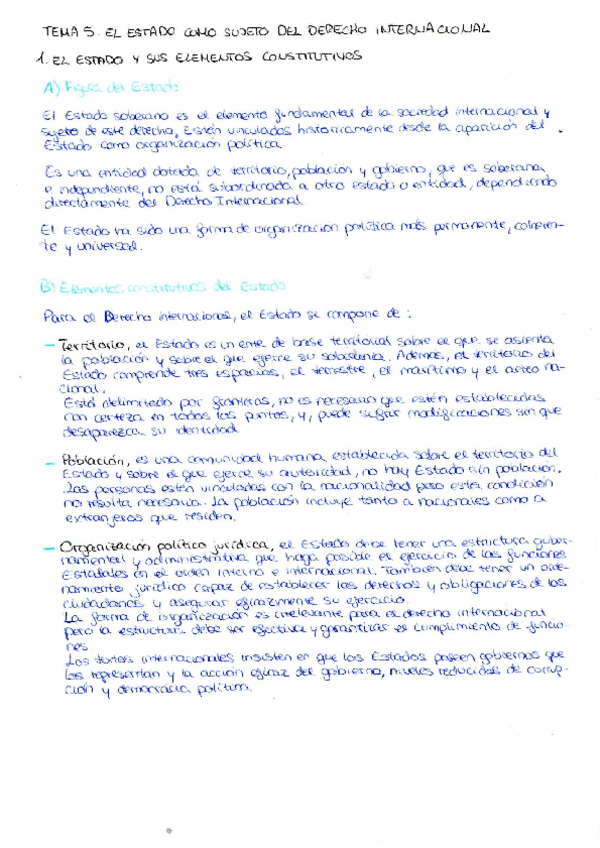 TEMA 5. EL ESTADO COMO SUJETO DEL DERECHO INTERNACIONAL
1. EL ESTADO Y SUS ELEMENTOS CONSTITUTIVOS
A) Figura del Estado
El Estado soberano es el elemento fundamental de la sociedad internacional y
sujeto de este derecho, Están vinculados históricamente desde la aparición del
Estado como organización política.
Es una entidad dotada de territorio, población y gobierno, que es soberana
e independiente, no está subordinada a otro estado o entidad, dependiendo
directamente del Derecho Internacional
El Estado ha sido una forma de organización política más permanente, coheren-
te y universal.
B) Elementos constitutivos del Estado
Para el Derecho internacional, el Estado se compone de :
– Territorio, el Estado es un ente de base territorial sobre el que se asienta
la población y sobre el que ejerce su soberanía. Además, el territorio del
Estado comprende tres espacios, el terrestre, el marítimo y el aéreo na-
cional.
Está delimitado por fronteras, no es necesario que estén establecidas
con certeza en todos los puntos, y, puede sufrir modificaciones sin que
desaparezca su identidad
– Población, es una comunidad humana establecida sobre el territorio del
Estado y sobre el que ejerce su autoridad, no hay Estado sin población.
Las personas están vinculadas con la nacionalidad pero esta condición
no resulta necesaria. La población incluye tanto a nacionales como a
extranjeros que residen.
– Organización político jurídica, el Estado debe tener una estructura guber-
namental y administrativa que haga posible el ejercicio de las funciones
Estatales en el orden interno e internacional. También debe tener un orde-
namiento jurídico capaz de establecer los derechos y obligaciones de los
ciudadanos y asegurar eficazmente su ejercicio.
La forma de organización es irrelevante para el derecho internacional
pero la estructura debe ser efectiva y garantizar el cumplimiento de funcio-
nes
Los textos internacionales insisten en que los Estados poseen gobiernos que
les representan y la acción eficaz del gobierno, niveles reducidos de corrup-
ción y democracia política.